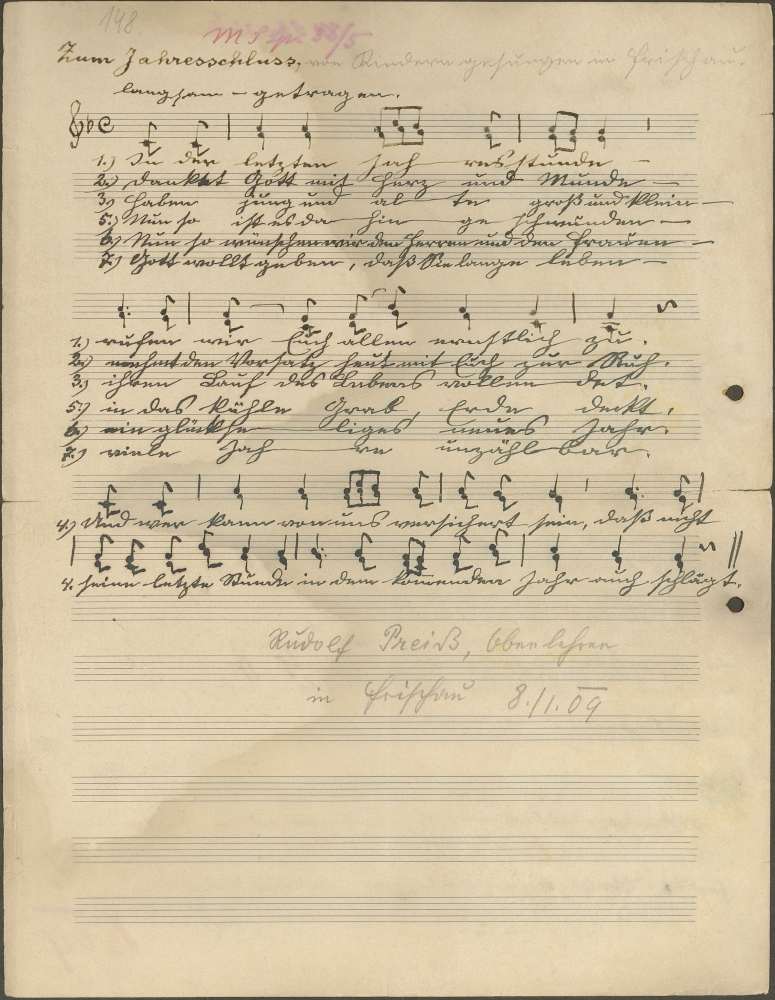 148
Zum Jahresschluss, von Kindern gesungen in Frischau.
langsam – getragen.
1.) In der letzten Jahresstunde –
2.) danket Gott mit Herz und Munde –
3.) haben jung und alte groß und klein –
5.) Nun so ist es da hingeschwunden –
6.) Nun so wünschen wir den Herren und den Frauen –
7.) Gott wollt geben, daß Sie lange leben –
1.) rufen wir Euch allen ernstlich zu.
2.) nehmt den Vorsatz heut mit Euch zur Ruh.
3.) ihren Lauf des Lebens vollendet.
5.) in das kühle Grab, Erde deckt.
6.) ein glückseliges neues Jahr.
7.) viele Jahre unzählbar.
4.) Und wer kann von uns versichert sein, daß nicht
4. seine letzte Stunde in dem kommenden Jahr auch schlägt.
Rudolf Preiß, Oberlehrer
in Frischau 8./1. 09